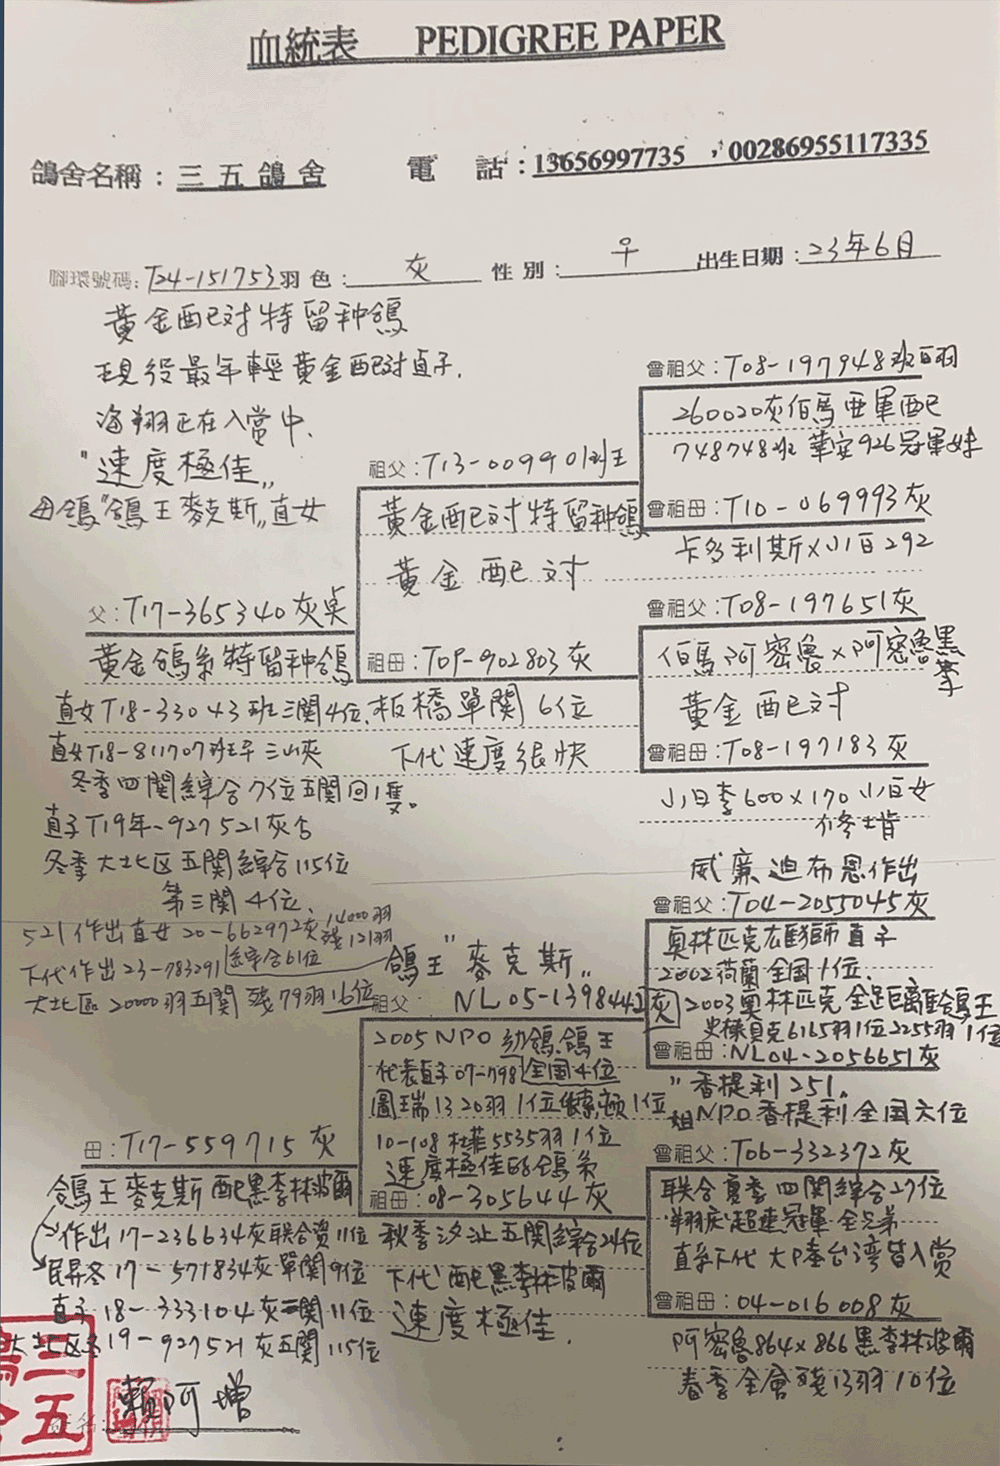 血統表 PEDIGREE PAPER
鴿舍名稱：三五鴿舍 電 話：13656997735 ，00286955117335
腳環號碼：T24-151753 羽色：灰 性別：♀ 出生日期：23年6月
黃金配対特留种鴿
現役最年輕黃金配対直子.
海翔正在入當中、
"速度極佳"
母鴿"鴿王麥克斯"直女
父：T17-365340灰
黃金鴿系特留种鴿
直女T18-33043班三関4位、板橋單関6位
直女T18-811707班 三山夾 下代速度很快
冬季四関綜合7位五関回1隻。
直子T19年-927521灰
冬季大北区五関綜合115位
第三関4位、
521作出直女20-662972灰 14000羽 殘121羽
綜合61位
下代作出23-783291
大北區20000羽五関 殘79羽16位
祖父：T13-009901班
黃金配対特留种鴿
黃金配対
祖母：T09-902803灰
曾祖父：T08-197948班白羽
260020灰伯馬亜軍配
748748班 華安926冠軍妹
曾祖母：T10-069993灰
卡多利斯x小白292
曾祖父：T08-197651灰
伯馬阿密魯x阿密魯黑
黃金配対
曾祖母：T08-197183灰
小日李600x170小白女
修士肯
威廉迪布恩作出
曾祖父：T04-2055045灰
奧林匹克雄獅直子
2002荷蘭全国1位.
2003奧林匹克全距離鴿王
6165羽1位2255羽1位
曾祖母：NL04-2056651灰
"香提利251.
姐NPO香提利全国六位
鴿王"麥克斯"
祖父：NL05-1398442灰
2005 NPO 幼鴿鴿王
代表直子07-798全国4位
圖瑞1320羽1位 1位
10-108杜菲5535羽1位
速度極佳的鴿系
祖母：08-305644灰
秋季汐止五関綜合24位
下代配黑李林波爾
速度極佳.
曾祖父：T06-332372灰
联合夏季四関綜合27位
翔宸超速冠軍全兄弟
直孚下代 大P奉台湾皆入賞
曾祖母：04-016008灰
阿密魯864x866黑李林波爾
春季全會殘13羽10位
母：T17-559715灰
鴿王麥克斯配黑李林波爾
作出17-236634灰联合資11位
民昇冬17-571834灰單関9位
直子18-333104灰三関11位
大北区冬19-927521灰五関115位
賴阿增
三五